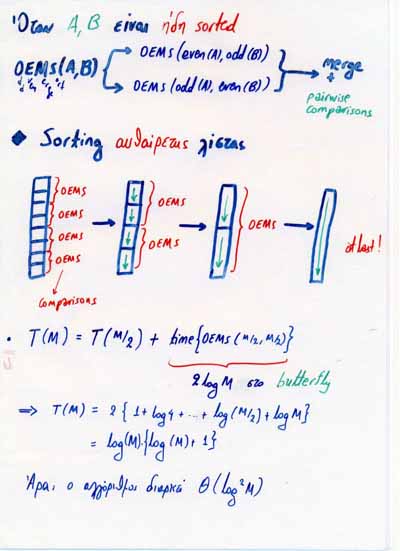 Όταν A, B είναι ήδη sorted
OEMS(A,B)
OEMS(even(A), odd(B))
OEMS(odd(A), even(B))
merge
+
pairwise
comparisons
◆ Sorting αυθαίρετης λίστας
OEMS
OEMS
OEMS
OEMS
comparisons
OEMS
OEMS
OEMS
at last!
• T(M) = T(M/2) + time{OEMS(M/2, M/2)}
2logM στο butterfly
⇒ T(M) = 2 { 1 + log4 + ... + log(M/2) + logM }
= log(M).{log(M) + 1}
Άρα, ο αλγόριθμος διαρκεί Θ(log²M)